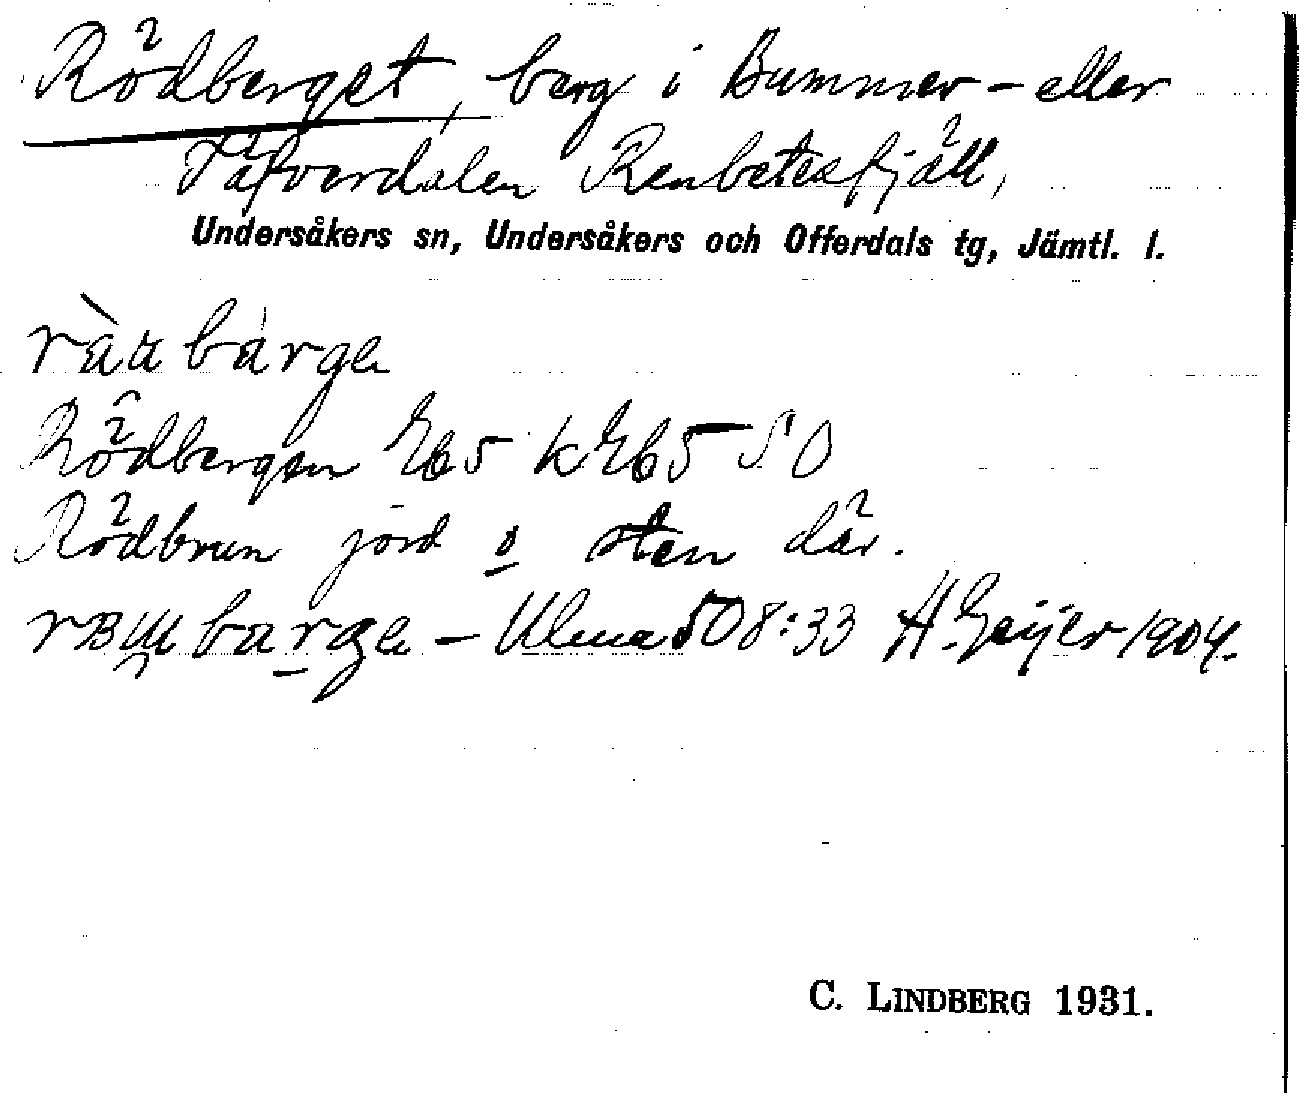 Rödberget, berg i Bummer- eller
Täfverdalen Renbetesfjäll,
Undersåkers sn, Undersåkers och Offerdals tg, Jämtl. l.
Rödbergen Eb5 kEb5 SO
Rödbrun jord o sten där.
barge - Ulma 508:33 H. Geijer 1904.
C. LINDBERG 1931.